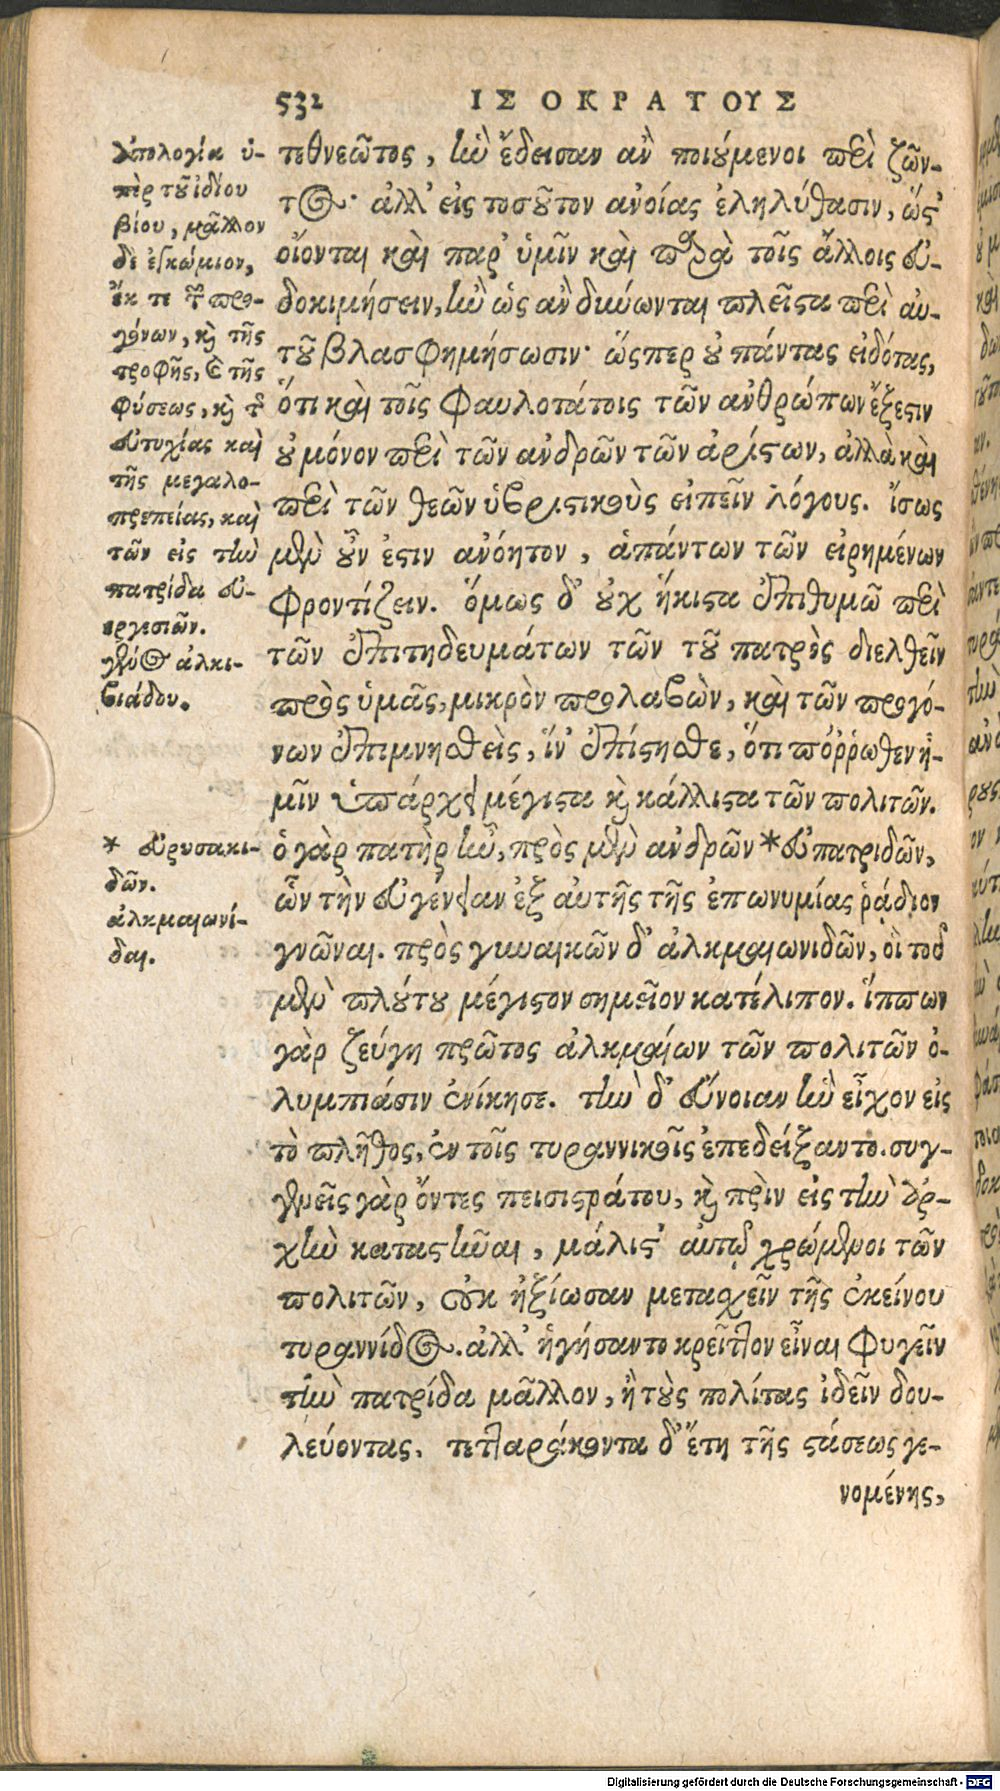 532 ΙΣΟΚΡΑΤΟΥΣ
τεθνεῶτος, ἣν ἔδεισαν ἂν ποιούμενοι περὶ ζῶν-
τος· ἀλλ' εἰς τοσοῦτον ἀνοίας ἐληλύθασιν, ὥς'
οἴονται καὶ παρ' ὑμῖν καὶ παρὰ τοῖς ἄλλοις εὐ-
δοκιμήσειν, ἢν ὡς ἂν δύνωνται πλεῖστα περὶ αὐ-
τοῦ βλασφημήσωσιν· ὥσπερ οὐ πάντας εἰδότας,
ὅτι καὶ τοῖς φαυλοτάτοις τῶν ἀνθρώπων ἔξεστιν
οὐ μόνον περὶ τῶν ἀνδρῶν τῶν ἀρίστων, ἀλλὰ καὶ
περὶ τῶν θεῶν ὑβριστικοὺς εἰπεῖν λόγους. ἴσως
μὲν οὖν ἐστιν ἀνόητον, ἁπάντων τῶν εἰρημένων
φροντίζειν. ὅμως δ' οὐχ ἥκιστα ἐπιθυμῶ περὶ
τῶν ἐπιτηδευμάτων τῶν τοῦ πατρὸς διελθεῖν
πρὸς ὑμᾶς, μικρὸν προλαβὼν, καὶ τῶν προγό-
νων ἐπιμνησθεὶς, ἵν' ἐπίστησθε, ὅτι πόῤῥωθεν ἡ-
μῖν ὑπάρχει μέγιστα καὶ κάλλιστα τῶν πολιτῶν.
ὁ γὰρ πατὴρ ἦν, πρὸς μὲν ἀνδρῶν *εὐπατριδῶν,
ὧν τὴν εὐγένειαν ἐξ αὐτῆς τῆς ἐπωνυμίας ῥᾴδιον
γνῶναι. πρὸς γυναικῶν δ' ἀλκμαιωνιδῶν, οἳ τοῦ
μὲν πλούτου μέγιστον σημεῖον κατέλιπον. ἵππων
γὰρ ζεύγη πρῶτος ἀλκμαίων τῶν πολιτῶν ὀ-
λυμπιάσιν ἐνίκησε. τὴν δ' εὔνοιαν ἣν εἶχον εἰς
τὸ πλῆθος, ἐν τοῖς τυραννικοῖς ἐπεδείξαντο. συγ-
γενεῖς γὰρ ὄντες πεισιστράτου, καὶ πρὶν εἰς τὴν ἀρ-
χὴν καταστῆναι, μάλιστ' αὐτῷ χρώμενοι τῶν
πολιτῶν, οὐκ ἠξίωσαν μετασχεῖν τῆς ἐκείνου
τυραννίδος. ἀλλ' ἡγήσαντο κρεῖττον εἶναι φυγεῖν
τὴν πατρίδα μᾶλλον, ἢ τοὺς πολίτας ἰδεῖν δου-
λεύοντας. τετταράκοντα δ' ἔτη τῆς στάσεως γε-
νομένης,
Ἀπολογία ὑ-
πὲρ τοῦ ἰδίου
βίου, μᾶλλον
δὲ ἐγκώμιον,
ἔκ τε τῶν προ-
γόνων, καὶ τῆς
τροφῆς, καὶ τῆς
φύσεως, καὶ τῆς
εὐτυχίας καὶ
τῆς μεγαλο-
πρεπείας, καὶ
τῶν εἰς τὴν
πατρίδα εὐ-
εργεσιῶν.
γένος ἀλκι-
βιάδου.
* εὐρυσακι-
δῶν.
ἀλκμαιωνί-
δαι.
Digitalisierung gefördert durch die Deutsche Forschungsgemeinschaft - DFG